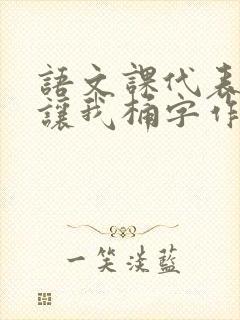 語文課代表
讓我桶字作
一笑淡藍